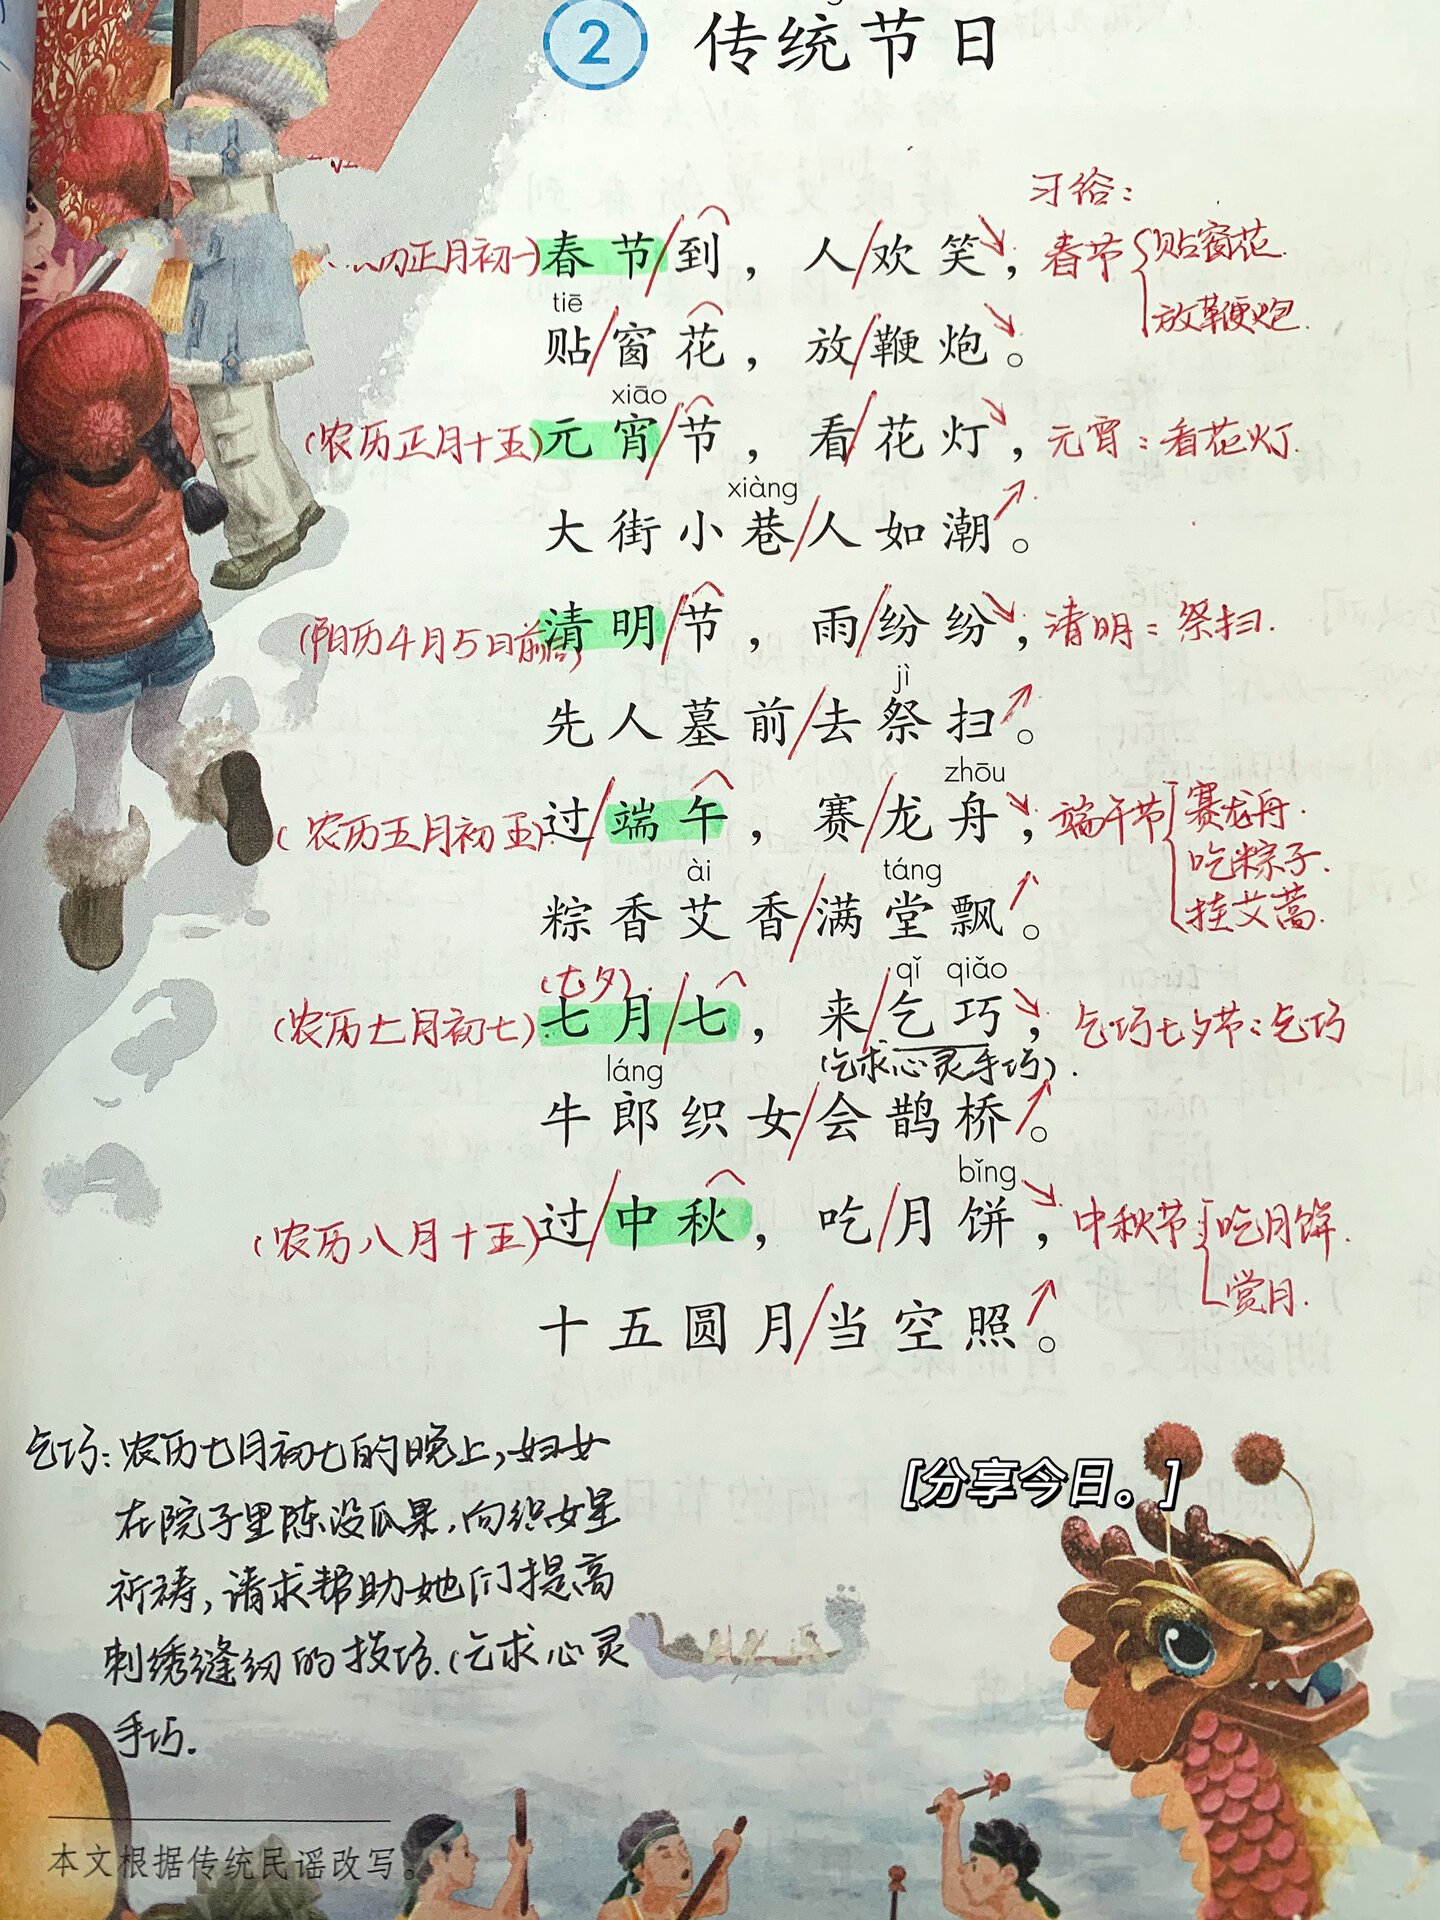 2 传统节日
习俗：
初正月初一)春节/到，人/欢笑，春节{贴窗花.
tiē
贴/窗花，放/鞭炮。放鞭炮.
xiāo
(农历正月十五)元宵/节，看/花灯，元宵：看花灯.
xiàng
大街小巷/人如潮。
(阳历4月5日前后)清明/节，雨/纷纷，清明：祭扫.
jì
先人墓前/去祭扫。
zhōu
(农历五月初五)过/端午，赛/龙舟，端午节[赛龙舟.
吃粽子.
ài táng
粽香艾香/满堂飘。挂艾蒿.
(七夕) qǐ qiǎo
(农历七月初七)七月/七，来/乞巧，乞巧七夕节：乞巧
(乞求心灵手巧).
láng
牛郎织女/会鹊桥。
bǐng
(农历八月十五)过/中秋，吃/月饼，中秋节[吃月饼.
赏月.
十五圆月/当空照。
乞巧：农历七月初七的晚上，妇女
在院子里陈设瓜果，向织女星
祈祷，请求帮助她们提高
刺绣缝纫的技巧.(乞求心灵
手巧.
[分享今日。]
本文根据传统民谣改写。